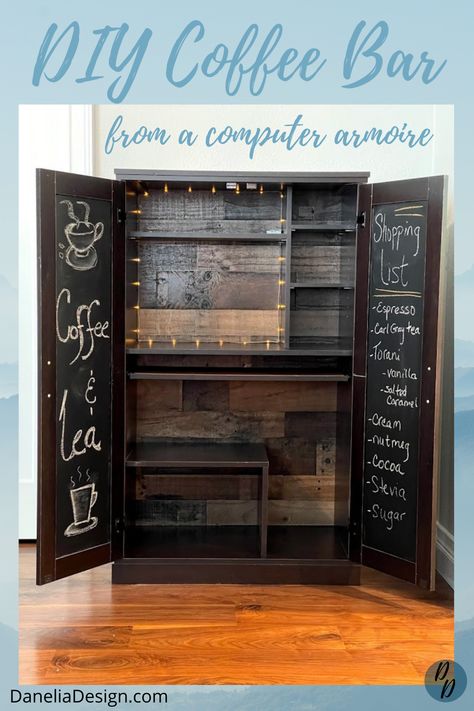 DIY Coffee Bar
from a computer armoire
Coffee
&
tea
Shopping
List
-Espresso
-Earl Grey tea
-Torani
-vanilla
-salted
caramel
-Cream
-nutmeg
-Cocoa
-Stevia
-Sugar
DaneliaDesign.com
DD